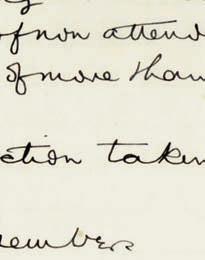 of non attend
of more than
ction taken
ember